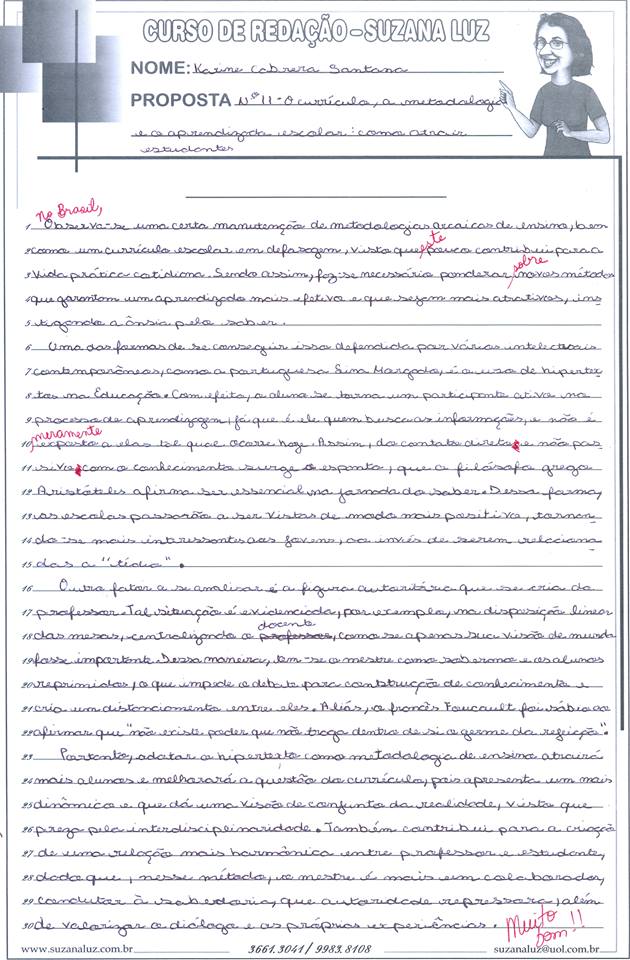 CURSO DE REDAÇÃO - SUZANA LUZ
NOME: Karine Cabrera Santana
PROPOSTA Nº 11 - O currículo, a metodologia
e o aprendizado escolar: como atrair
estudantes
no Brasil,
1 Observa-se uma certa manutenção de metodologias arcaicas de ensino, bem
este
2 como um currículo escolar em defasagem, visto que pouco contribui para a
sobre
3 vida prática cotidiana. Sendo assim, faz-se necessário ponderar novos métodos
4 que garantam um aprendizado mais efetivo e que sejam mais atrativos, ins
5 tigando a ânsia pelo saber.
6 Uma das formas de se conseguir isso defendida por vários intelectuais
7 contemporâneos, como a portuguesa Sina Margado, é o uso de hiperte
8 tos na Educação. Com efeito, o aluno se torna um participante ativo no
9 processo de aprendizagem, já que é ele quem busca as informações, e não é
meramente
10 exposto a elas tal qual ocorre hoje. Assim, do contato direto e não pas
11 sivo com o conhecimento surge o espanto, que o filósofo grego
12 Aristóteles afirma ser essencial na jornada do saber. Dessa forma,
13 as escolas passarão a ser vistas de modo mais positivo, tornan
14 do-se mais interessantes aos jovens, ao invés de serem relaciona
15 das a "tédio".
16 Outro fator a se analisar é a figura autoritária que se cria do
17 professor. Tal situação é evidenciada, por exemplo, na disposição linear
docente
18 das mesas, centralizando o professor, como se apenas sua visão de mundo
19 fosse importante. Dessa maneira, tem-se o mestre como soberano e os alunos
20 reprimidos, o que impede o debate para construção de conhecimento e
21 cria um distanciamento entre eles. Aliás, o francês Foucault foi sábio ao
22 afirmar que "não existe poder que não traga dentro de si o germe da rejeição".
23 Portanto, adotar o hipertexto como metodologia de ensino atrairá
24 mais alunos e melhorará a questão do currículo, pois apresenta um mais
25 dinâmico e que dá uma visão de conjunto da realidade, visto que
26 preza pela interdisciplinaridade. Também contribui para a criação
27 de uma relação mais harmônica entre professor e estudante,
28 dado que, nesse método, o mestre é mais um colaborador,
29 condutor à sabedoria, que autoridade repressora, além
30 de valorizar o diálogo e as próprias experiências.
Muito bom!!
www.suzanaluz.com.br 3661.3041 / 9983.8108 suzanaluz@uol.com.br